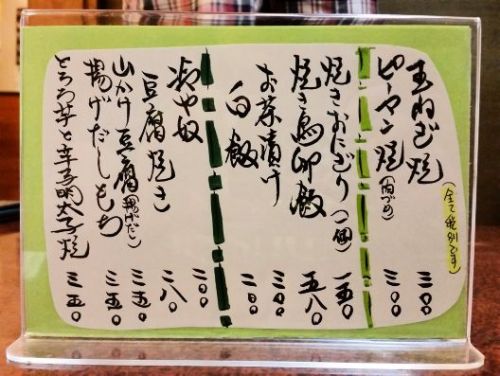 玉ねぎ焼 三〇〇
ピーマン焼(肉づめ) 三〇〇
(全て税別です)
焼きおにぎり(一個) 一五〇
焼き鳥卵飯 五八〇
お茶漬け 三〇〇
白飯 二〇〇
冷や奴 二〇〇
豆腐焼き 二八〇
山かけ豆腐(揚げだし) 三五〇
揚げだしもち 三五〇
とろろ芋と辛子明太子焼 三五〇